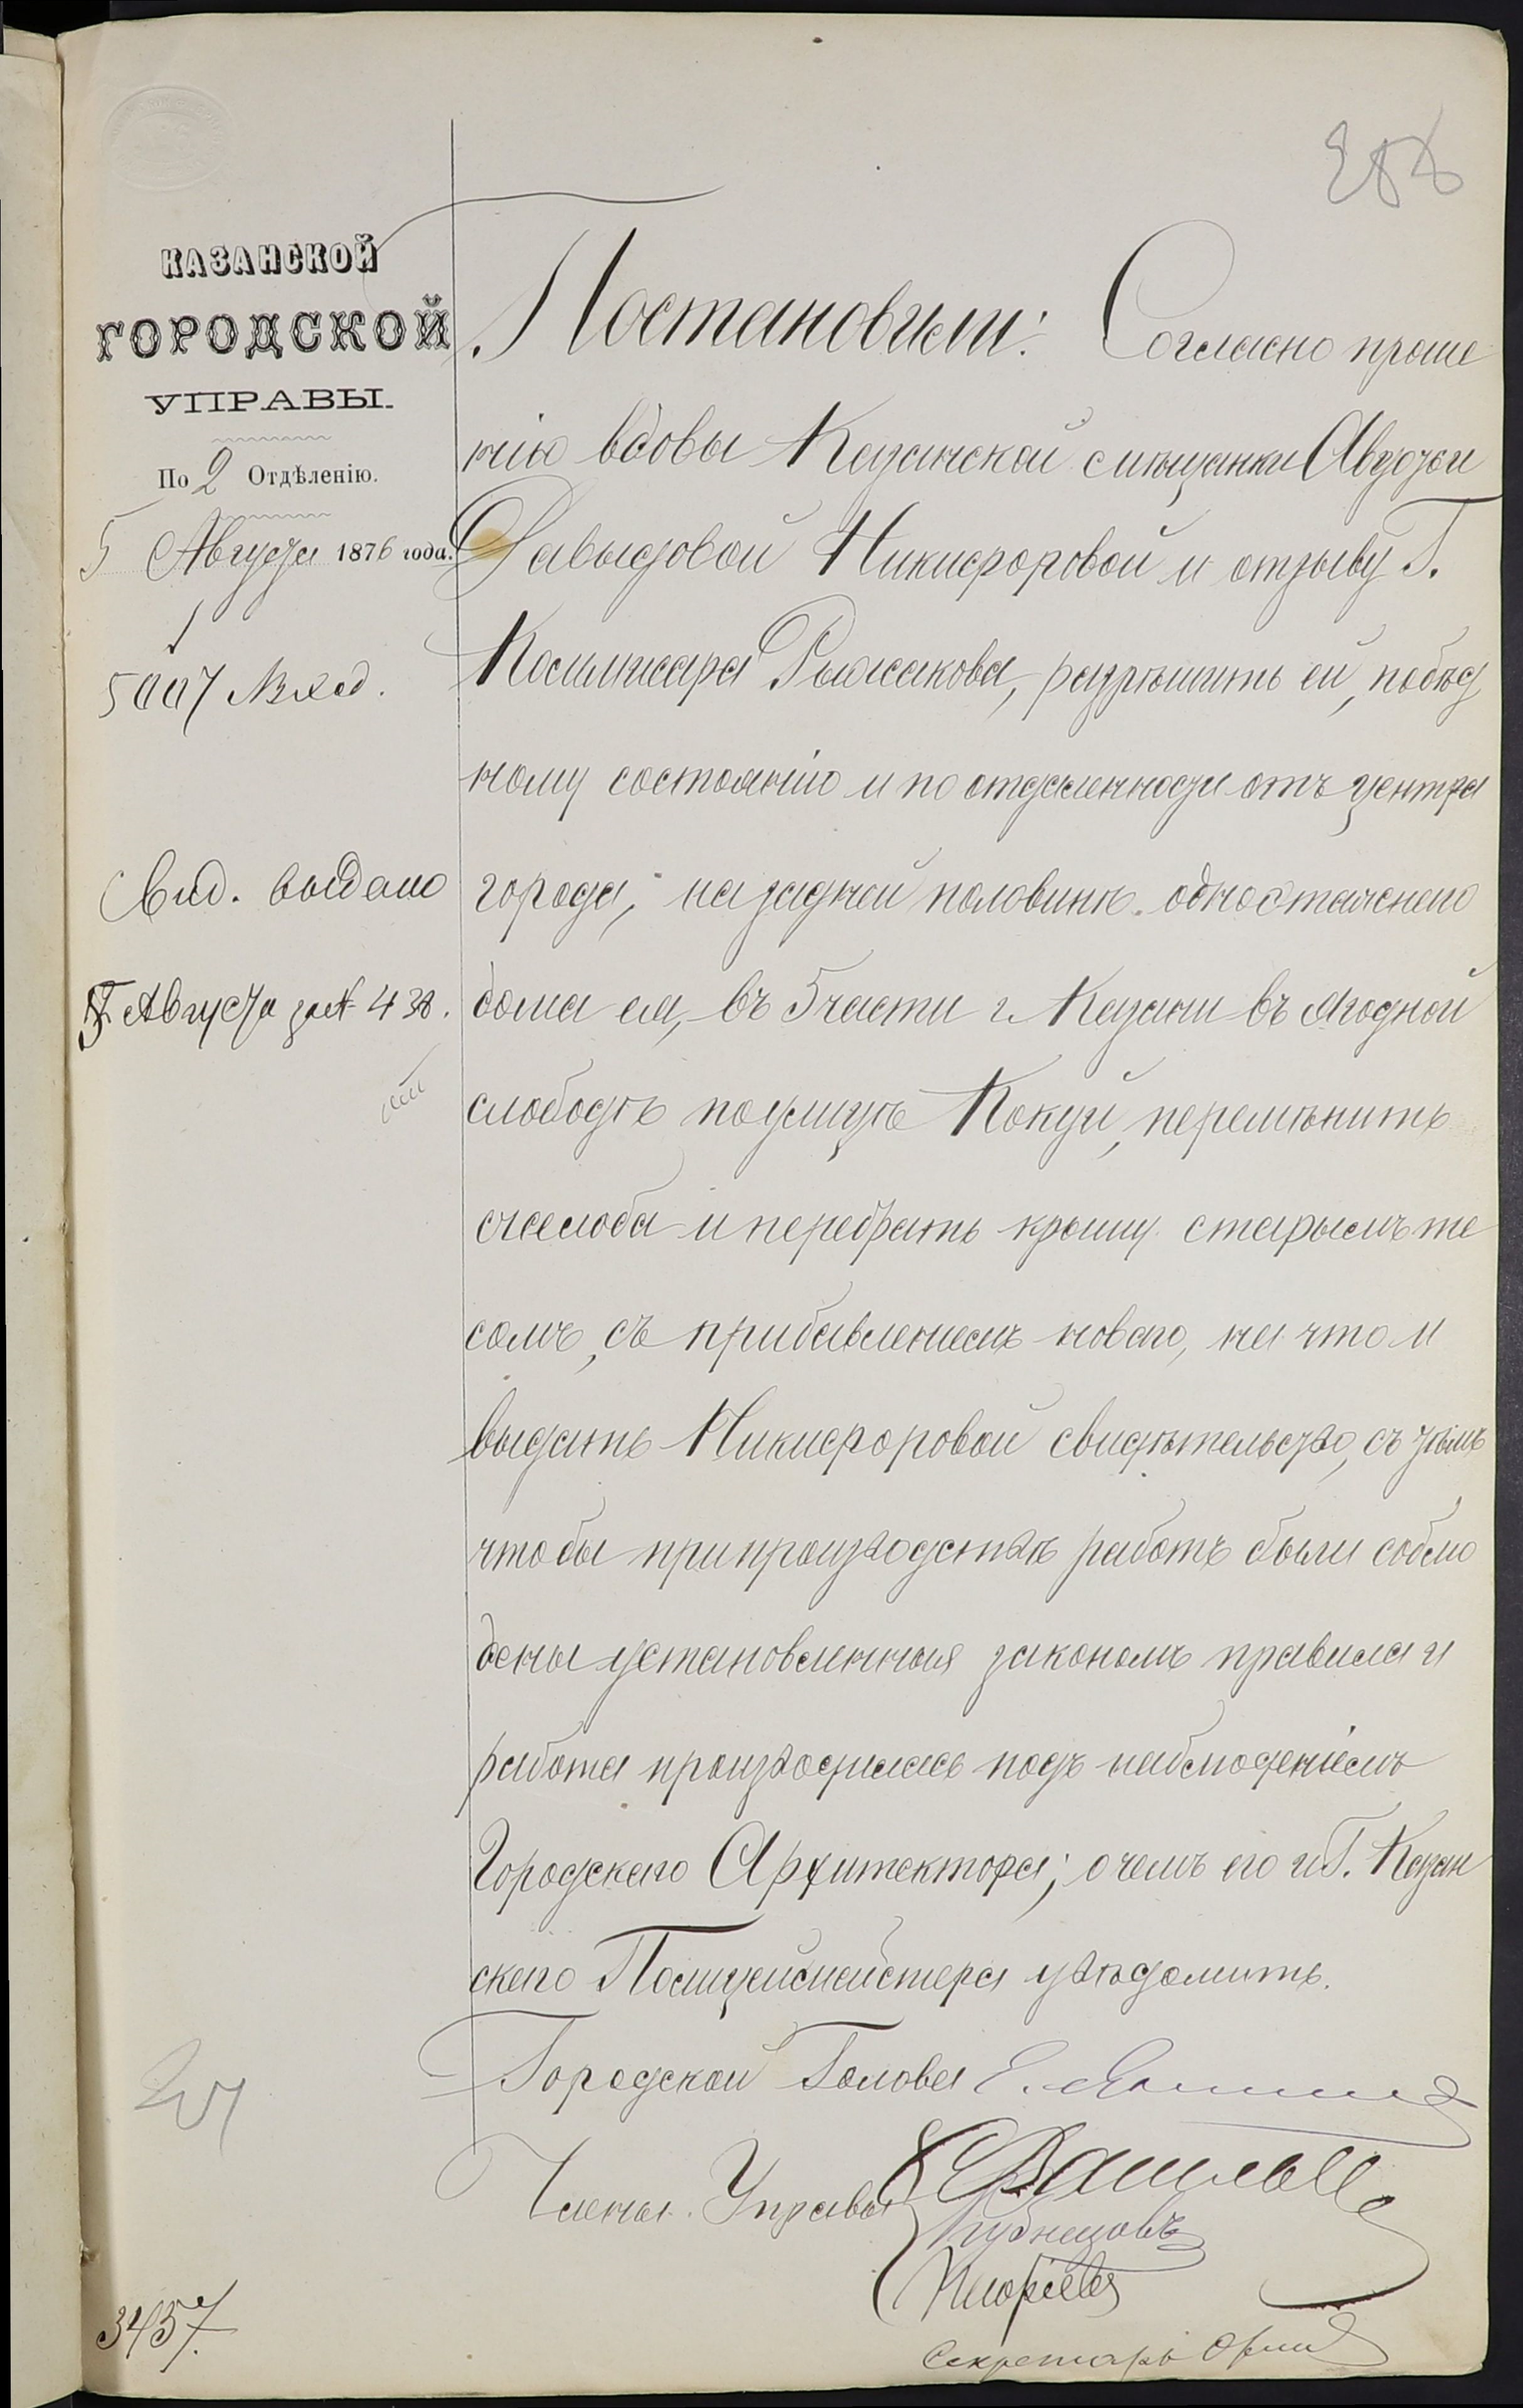 288
КАЗАНСКОЙ
ГОРОДСКОЙ
УПРАВЫ.
По 2 Отдѣленію.
5 Августа 1876 года.
5007 Вход.
Свид. выдано
5 Августа за № 438.
3457.
Постановили: Согласно проше
нію вдовы Казанской мѣщанки Авдотьи
Давыдовой Никифоровой и отзыву Г.
Коммисара Рыжакова, разрѣшить ей, по бѣд
ному состоянію и по отдаленности отъ центра
города, на задней половинѣ одноэтажнаго
дома ея, въ 5 части г. Казани въ Ягодной
слободѣ по улицѣ Кокуй, перемѣнить
жалоба и перебрать крышу старымъ те
сомъ, съ прибавленіемъ новаго, на что и
выдать Никифоровой свидѣтельство, съ тѣмъ
чтобы при производствѣ работъ были соблю
дены установленныя закономъ правила и
работа производилась подъ наблюденіемъ
Городскаго Архитектора; о чемъ его и Г. Казан
скаго Полицеймейстера увѣдомить.
Городской Голова
Члены Управы
Кузнецовъ
Секретарь